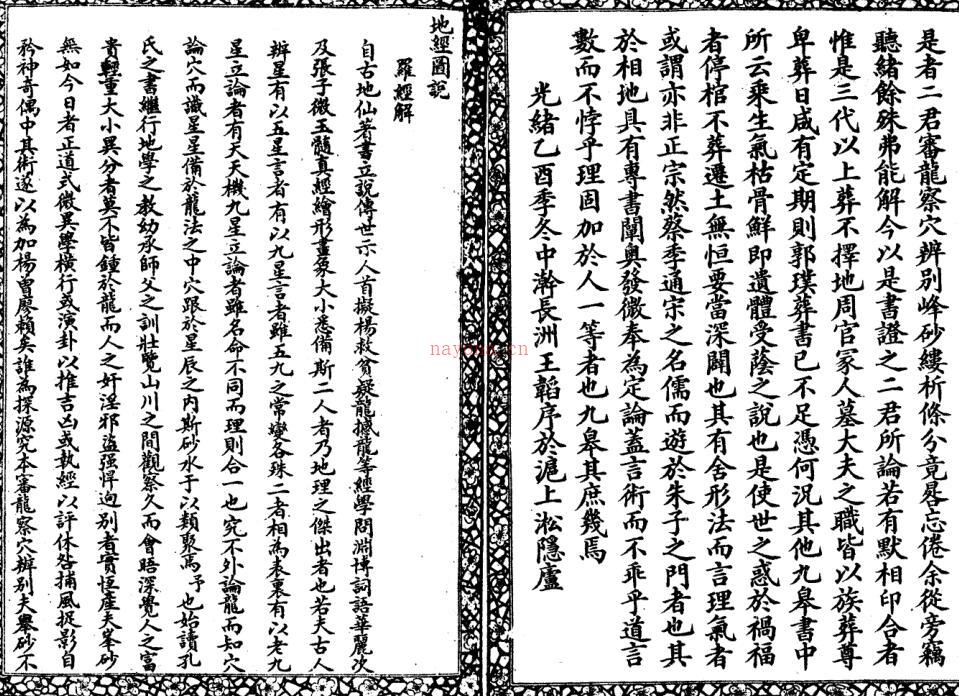 是者二君審龍察穴辨別峰砂縷析條分竟晷忘倦余從旁竊
聽緒餘殊弗能解今以是書證之二君所論若有默相印合者
惟是三代以上葬不擇地周官冢人墓大夫之職皆以族葬尊
卑葬日咸有定期則郭璞葬書已不足憑何況其他九皋書中
所云乘生氣枯骨鮮即遺體受蔭之說也是使世之惑於禍福
者停棺不葬遷土無恒要當深闢也其有舍形法而言理氣者
或謂亦非正宗然蔡季通宗之名儒而遊於朱子之門者也其
於相地具有專書闡奧發微奉為定論蓋言術而不乖乎道言
數而不悖乎理固加於人一等者也九皋其庶幾焉
光緒乙酉季冬中澣長洲王韜序於滬上淞隱廬
地經圖說
羅經解
自古地仙著書立說傳世示人首擬楊救貧疑龍撼龍等經學問淵博詞語華麗次
及張子微玉髓真經繪形畫象大小悉備斯二人者乃地理之傑出者也若夫古人
辨星有以五星言者有以九星言者雖五九之常變各殊二者相為表裏有以老九
星立論者有天天機九星立論者雖名命不同而理則合一也究不外論龍而知穴
論穴而識星星備於龍法之中穴跟於星辰之內斯砂水于以類聚焉予也始讀孔
氏之書繼行地學之教幼承師父之訓壯覽山川之間觀察久而會晤深覺人之富
貴輕重大小異分者莫不皆鍾於龍而人之奸淫邪盜強悍迥別者實恆產夫峯砂
無如今日者正道式微異學橫行或演卦以推吉凶或執經以評休咎捕風捉影自
矜神奇偶中其術遂以為加楊曾廖賴矣誰為探源究本審龍察穴辨別夫巒砂不
nayona.cn